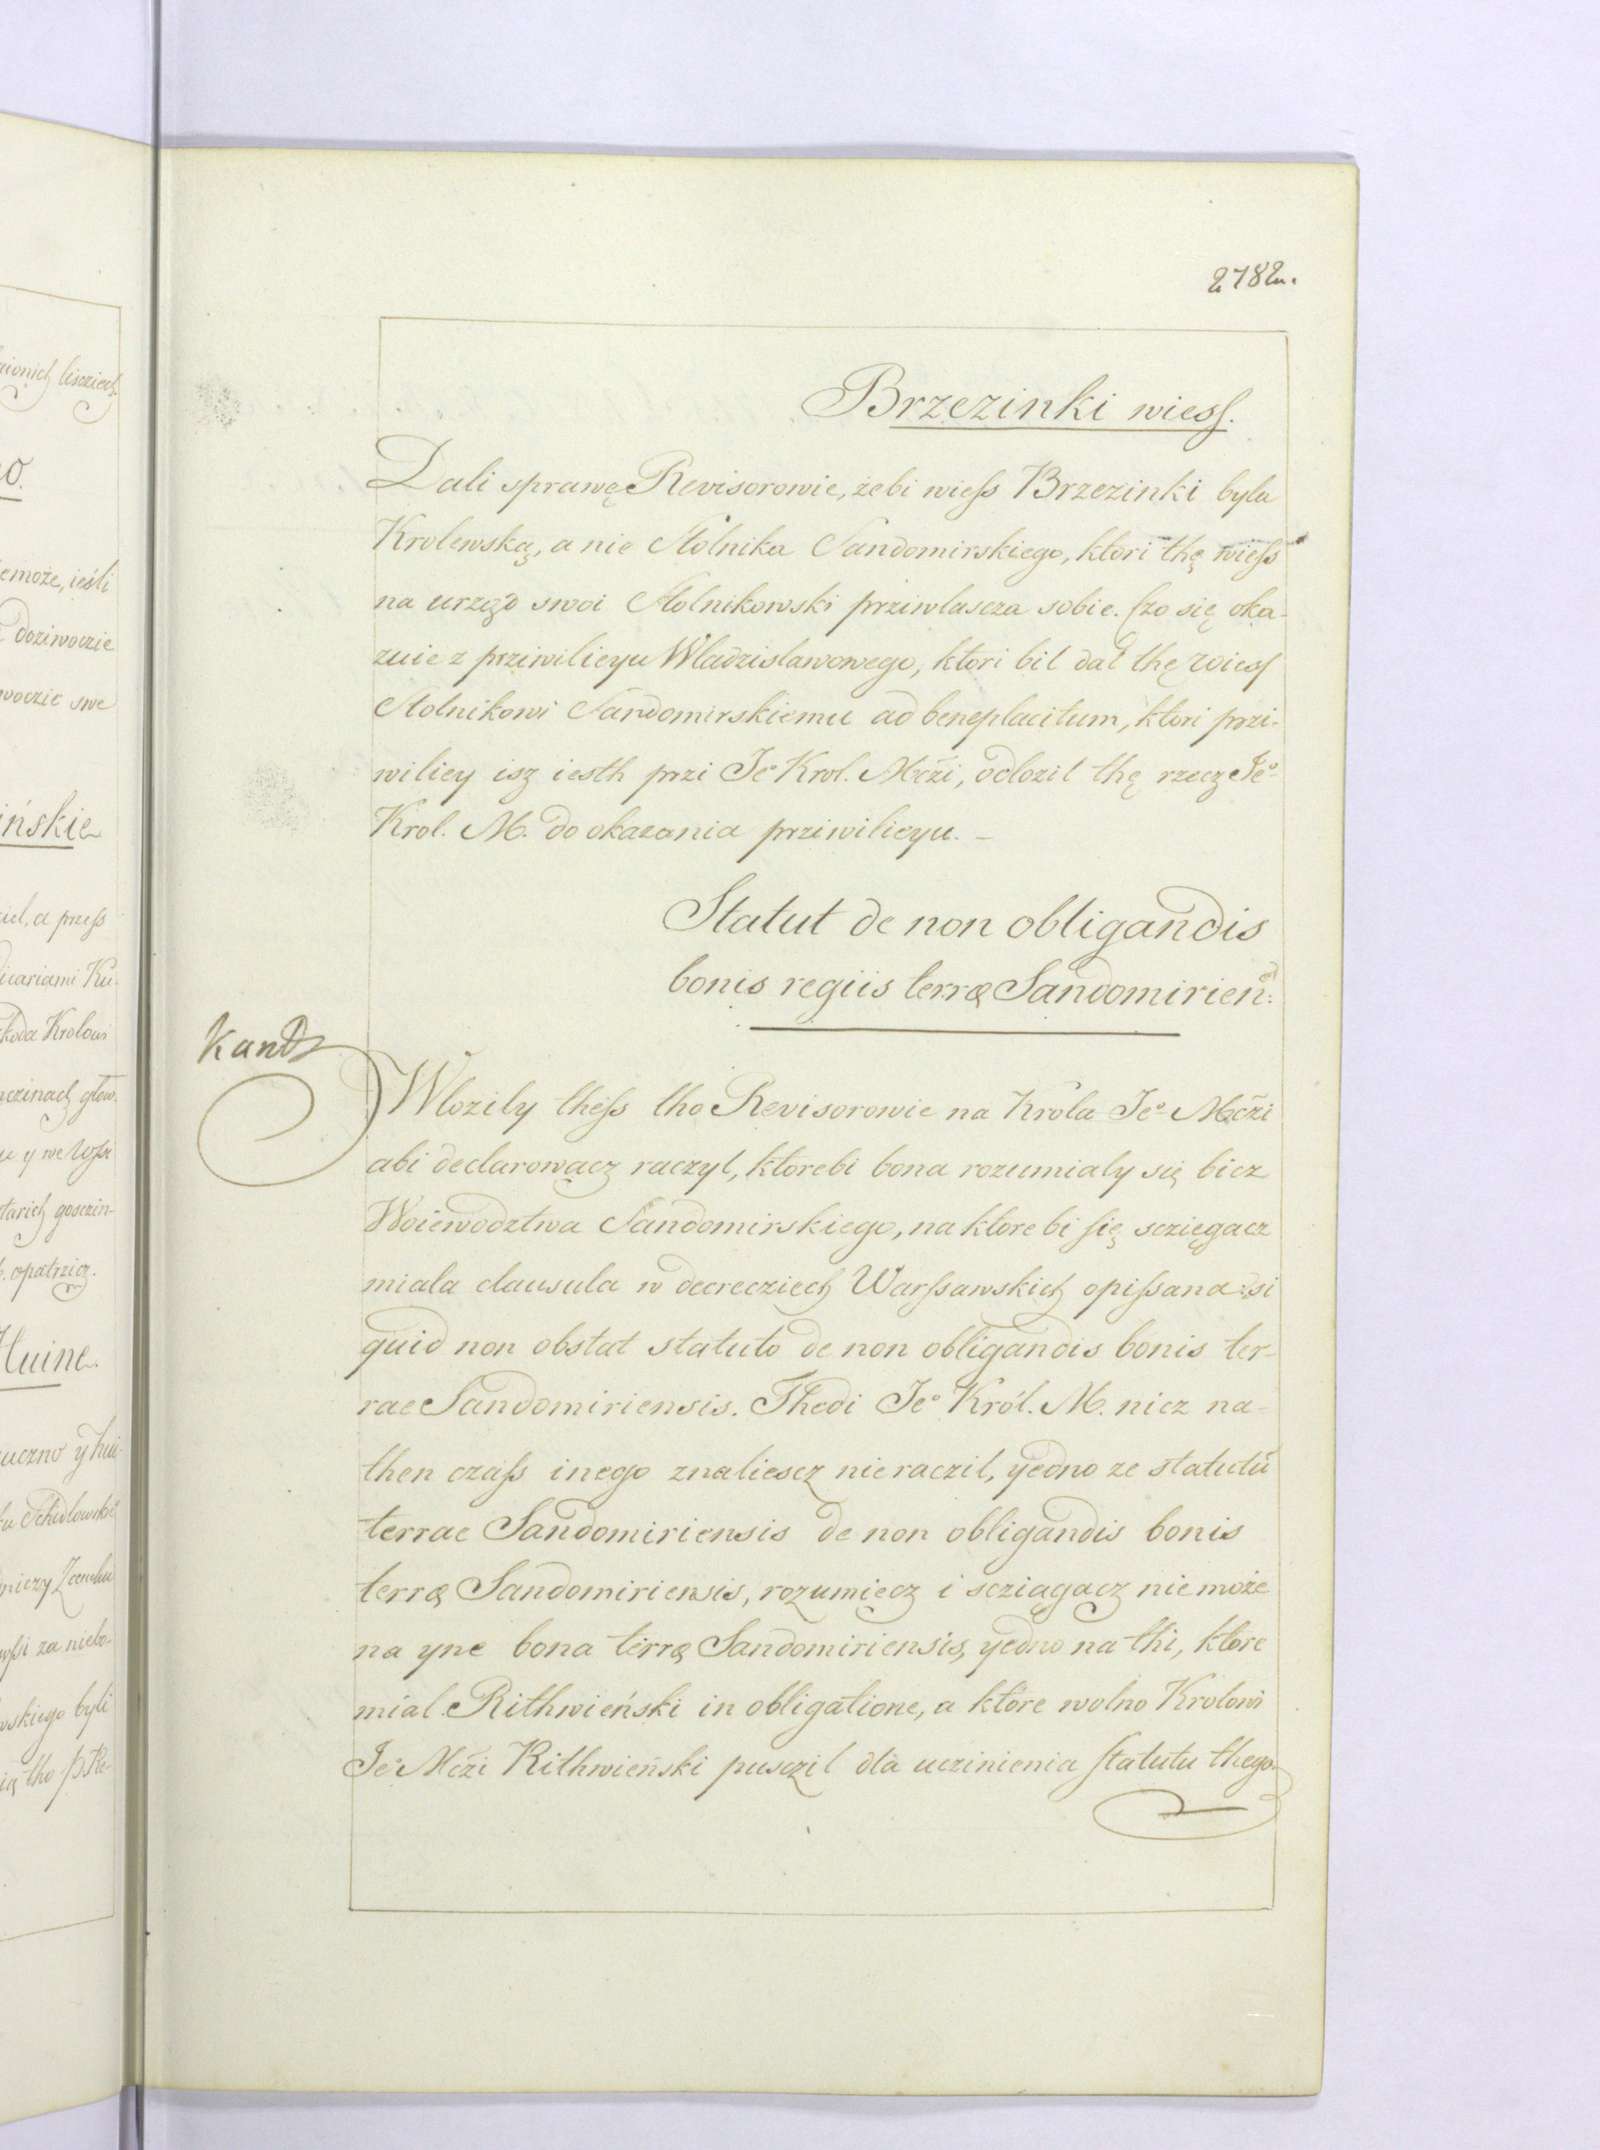 2782.
Brzezinki wiess.
Dali sprawę Revisorowie, żebi wiess Brzezinki byla
Krolewską, a nie Stolnika Sandomirskiego, ktori thę wiess
na urząd swoi Stolnikowski prziwlascza sobie. Czo się oka-
zuie z prziwilieyu Wladzislawowego, ktori bil dał thę wiess
Stolnikowi Sandomirskiemu ad beneplacitum, ktori przi-
wiliey isz iesth przi Jeº Krol. Mczi, odlozil thę rzecz Jeº
Krol. M. do okazania prziwilieyu. –
Statut de non obligandis
bonis regiis terrę Sandomirien:
Wlozily thess tho Revisorowie na Krola Jeº Mczi
abi declarowacz raczyl, ktorebi bona rozumialy się bicz
Woiewodztwa Sandomirskiego, na ktore bi się sczięgacz
miala clausula w decrecziech Warssawskich opissana: si
quid non obstat statuto de non obligandis bonis ter-
rae Sandomiriensis. Thedi Jeº Król. M. nicz na-
then czass inego znaliescz nie raczil, yedno ze statutu
terrae Sandomiriensis de non obligandis bonis
terrę Sandomiriensis, rozumiecz i scziagacz nie może
na yne bona terrę Sandomiriensis, yedno na thi, ktore
mial Rithwieński in obligatione, a które wolno Krolowi
Jeº Mczi Rithwieński pusczil dla uczinienia statutu thego.
ionich lisciech
o.
emoże, ieśli
doziwoczie
woczie swe
ińskie
iel, a przess
icariami Ku-
koda Krolowi
czinach głow.
u y we wssi
tarich gosczin-
opatrzicz.
Huine.
uczno y hui-
niczy Zamku
wssi za niebo-
wskiego byli
ią tho P. Re-